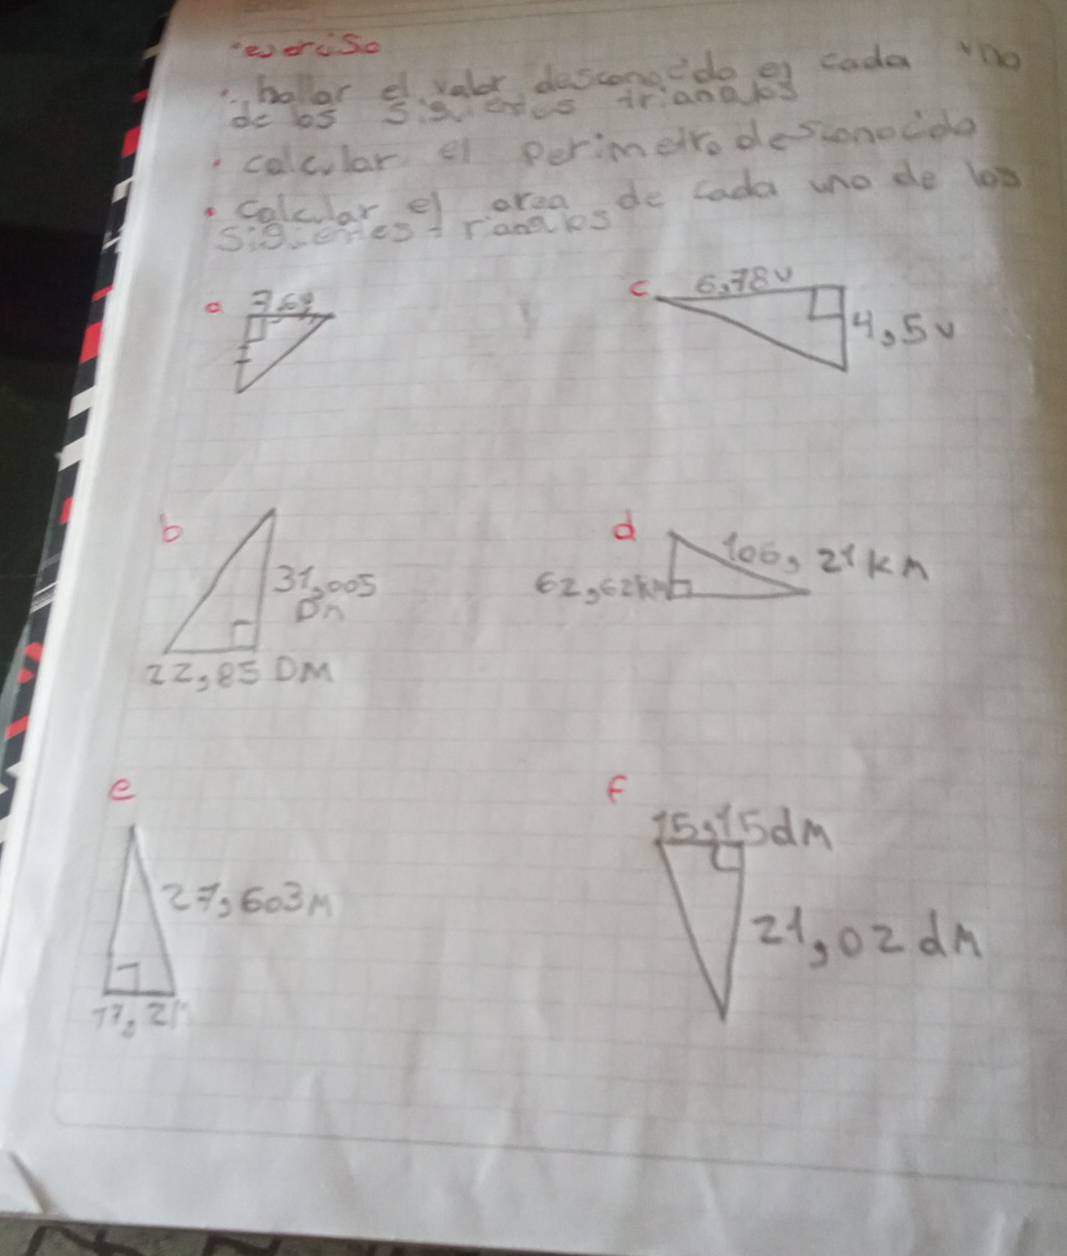 exerciso
hallar el valor desconocido en cada uno
de los siguientes triangulos
calcular el perimetro desconocido
calcular el area de cada uno de los
siguientes triangulos
a
c 6,78v
4,5v
b
31,005
Dm
22,85 DM
d 106,21km
62,62km
e
27,603m
17,2m
f
15,15dm
21,02 dm